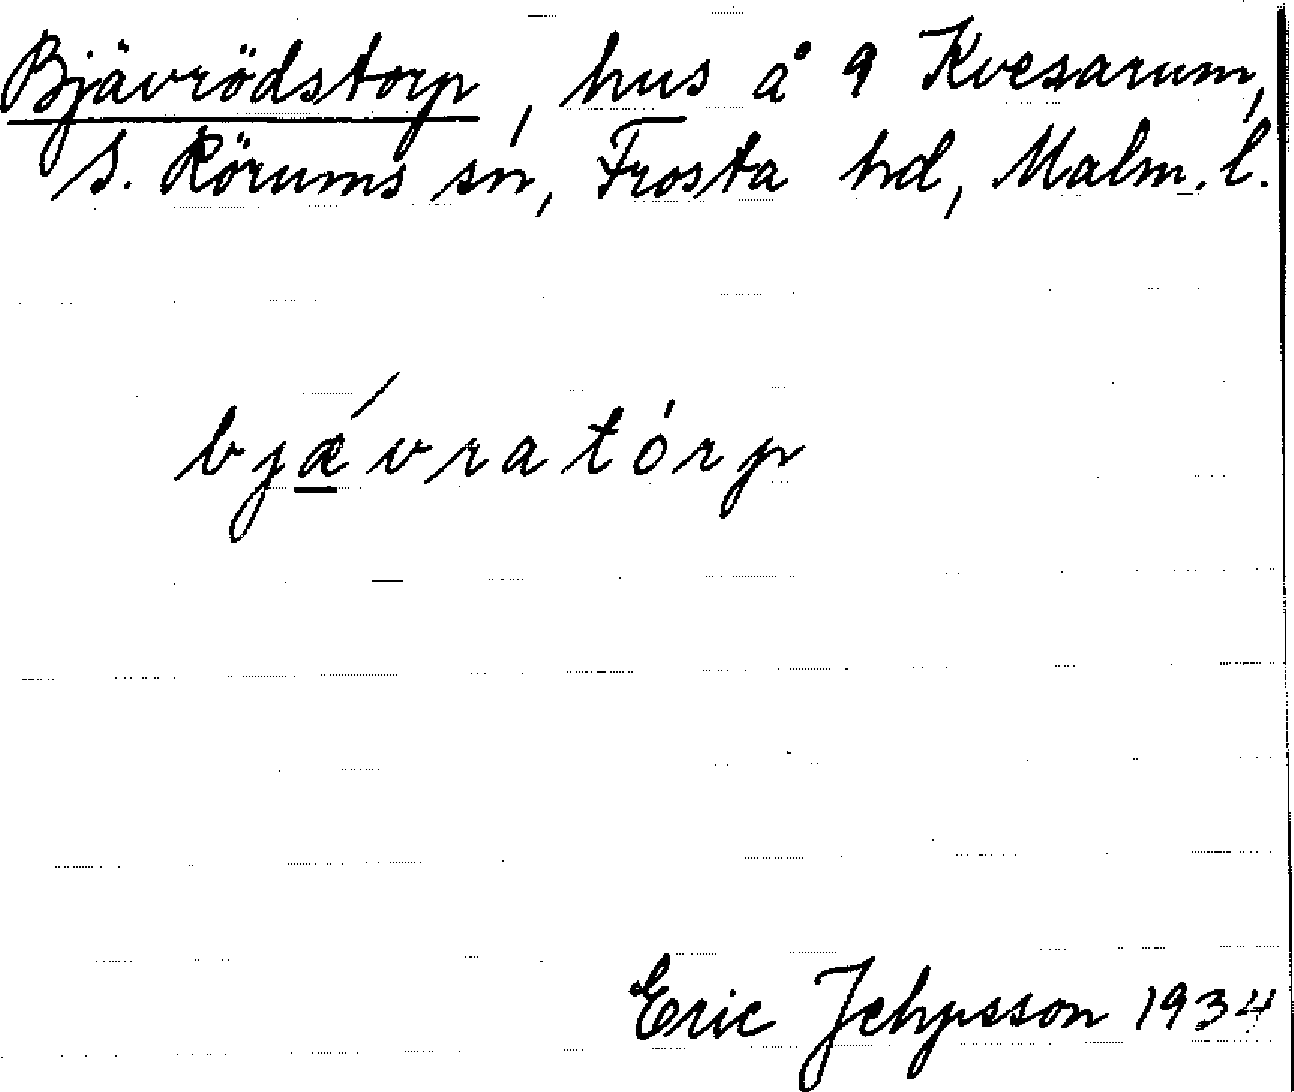 Bjävrödstorp, hus å 9 Kvesarum,
S. Rörums sn, Frosta hd, Malm. l.
bjǽvratórp
Eric Jehpsson 1934